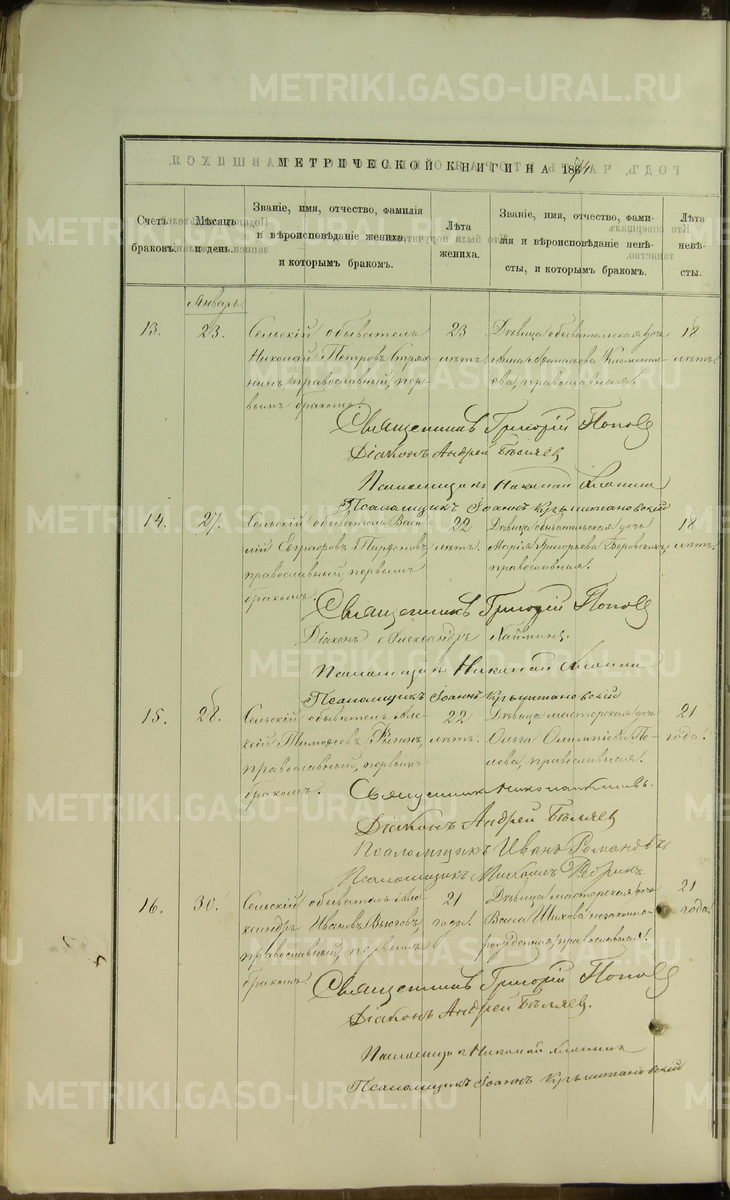 METRIKI.GASO-URAL.RU
МЕТРИЧЕСКОЙ КНИГИ НА 1874
Счетъ браковъ.
Мѣсяцъ и день.
Званіе, имя, отчество, фамилія и вѣроисповѣданіе жениха, и которымъ бракомъ.
Лѣта жениха.
Званіе, имя, отчество, фами-
лія и вѣроисповѣданіе невѣ-
сты, и которымъ бракомъ.
Лѣта невѣ-
сты.
Январь
13.
23.
Сельскій обыватель
Николай Петровъ
православный, пер-
вымъ бракомъ.
23
лѣтъ.
Дѣвица обывательская дочь
Анна Климонть-
ева, православная.
18
лѣтъ.
Священникъ Григорій Поповъ
Діаконъ Андрей Бѣляевъ
Псаломщикъ Николай
Псаломщикъ Іоаннъ
14.
27.
Сельскій обыватель Васи-
лій Евграфовъ Парфеновъ,
православный, первымъ
бракомъ.
22
лѣтъ.
Дѣвица обывательская дочь
Марія Григорьева
православная.
18
лѣтъ.
Священникъ Григорій Поповъ
Діаконъ Александръ
Псаломщикъ Николай
Псаломщикъ Іоаннъ
15.
28.
Сельскій обыватель Але-
ксѣй Тимофеевъ
православный, первымъ
бракомъ.
22
лѣтъ.
Дѣвица мастерская дочь
Ольга Олимпіева По-
пова, православная.
21
года.
Священникъ
Діаконъ Андрей Бѣляевъ
Псаломщикъ Иванъ Романовъ
Псаломщикъ Михаилъ
16.
30.
Сельскій обыватель Але-
ксандръ Ивановъ Вьюговъ,
православный, первымъ
бракомъ.
21
года.
Дѣвица мастерская дочь
Васса незаконно-
рожденная, православная.
21
года.
Священникъ Григорій Поповъ
Діаконъ Андрей Бѣляевъ.
Псаломщикъ Николай
Псаломщикъ Іоаннъ